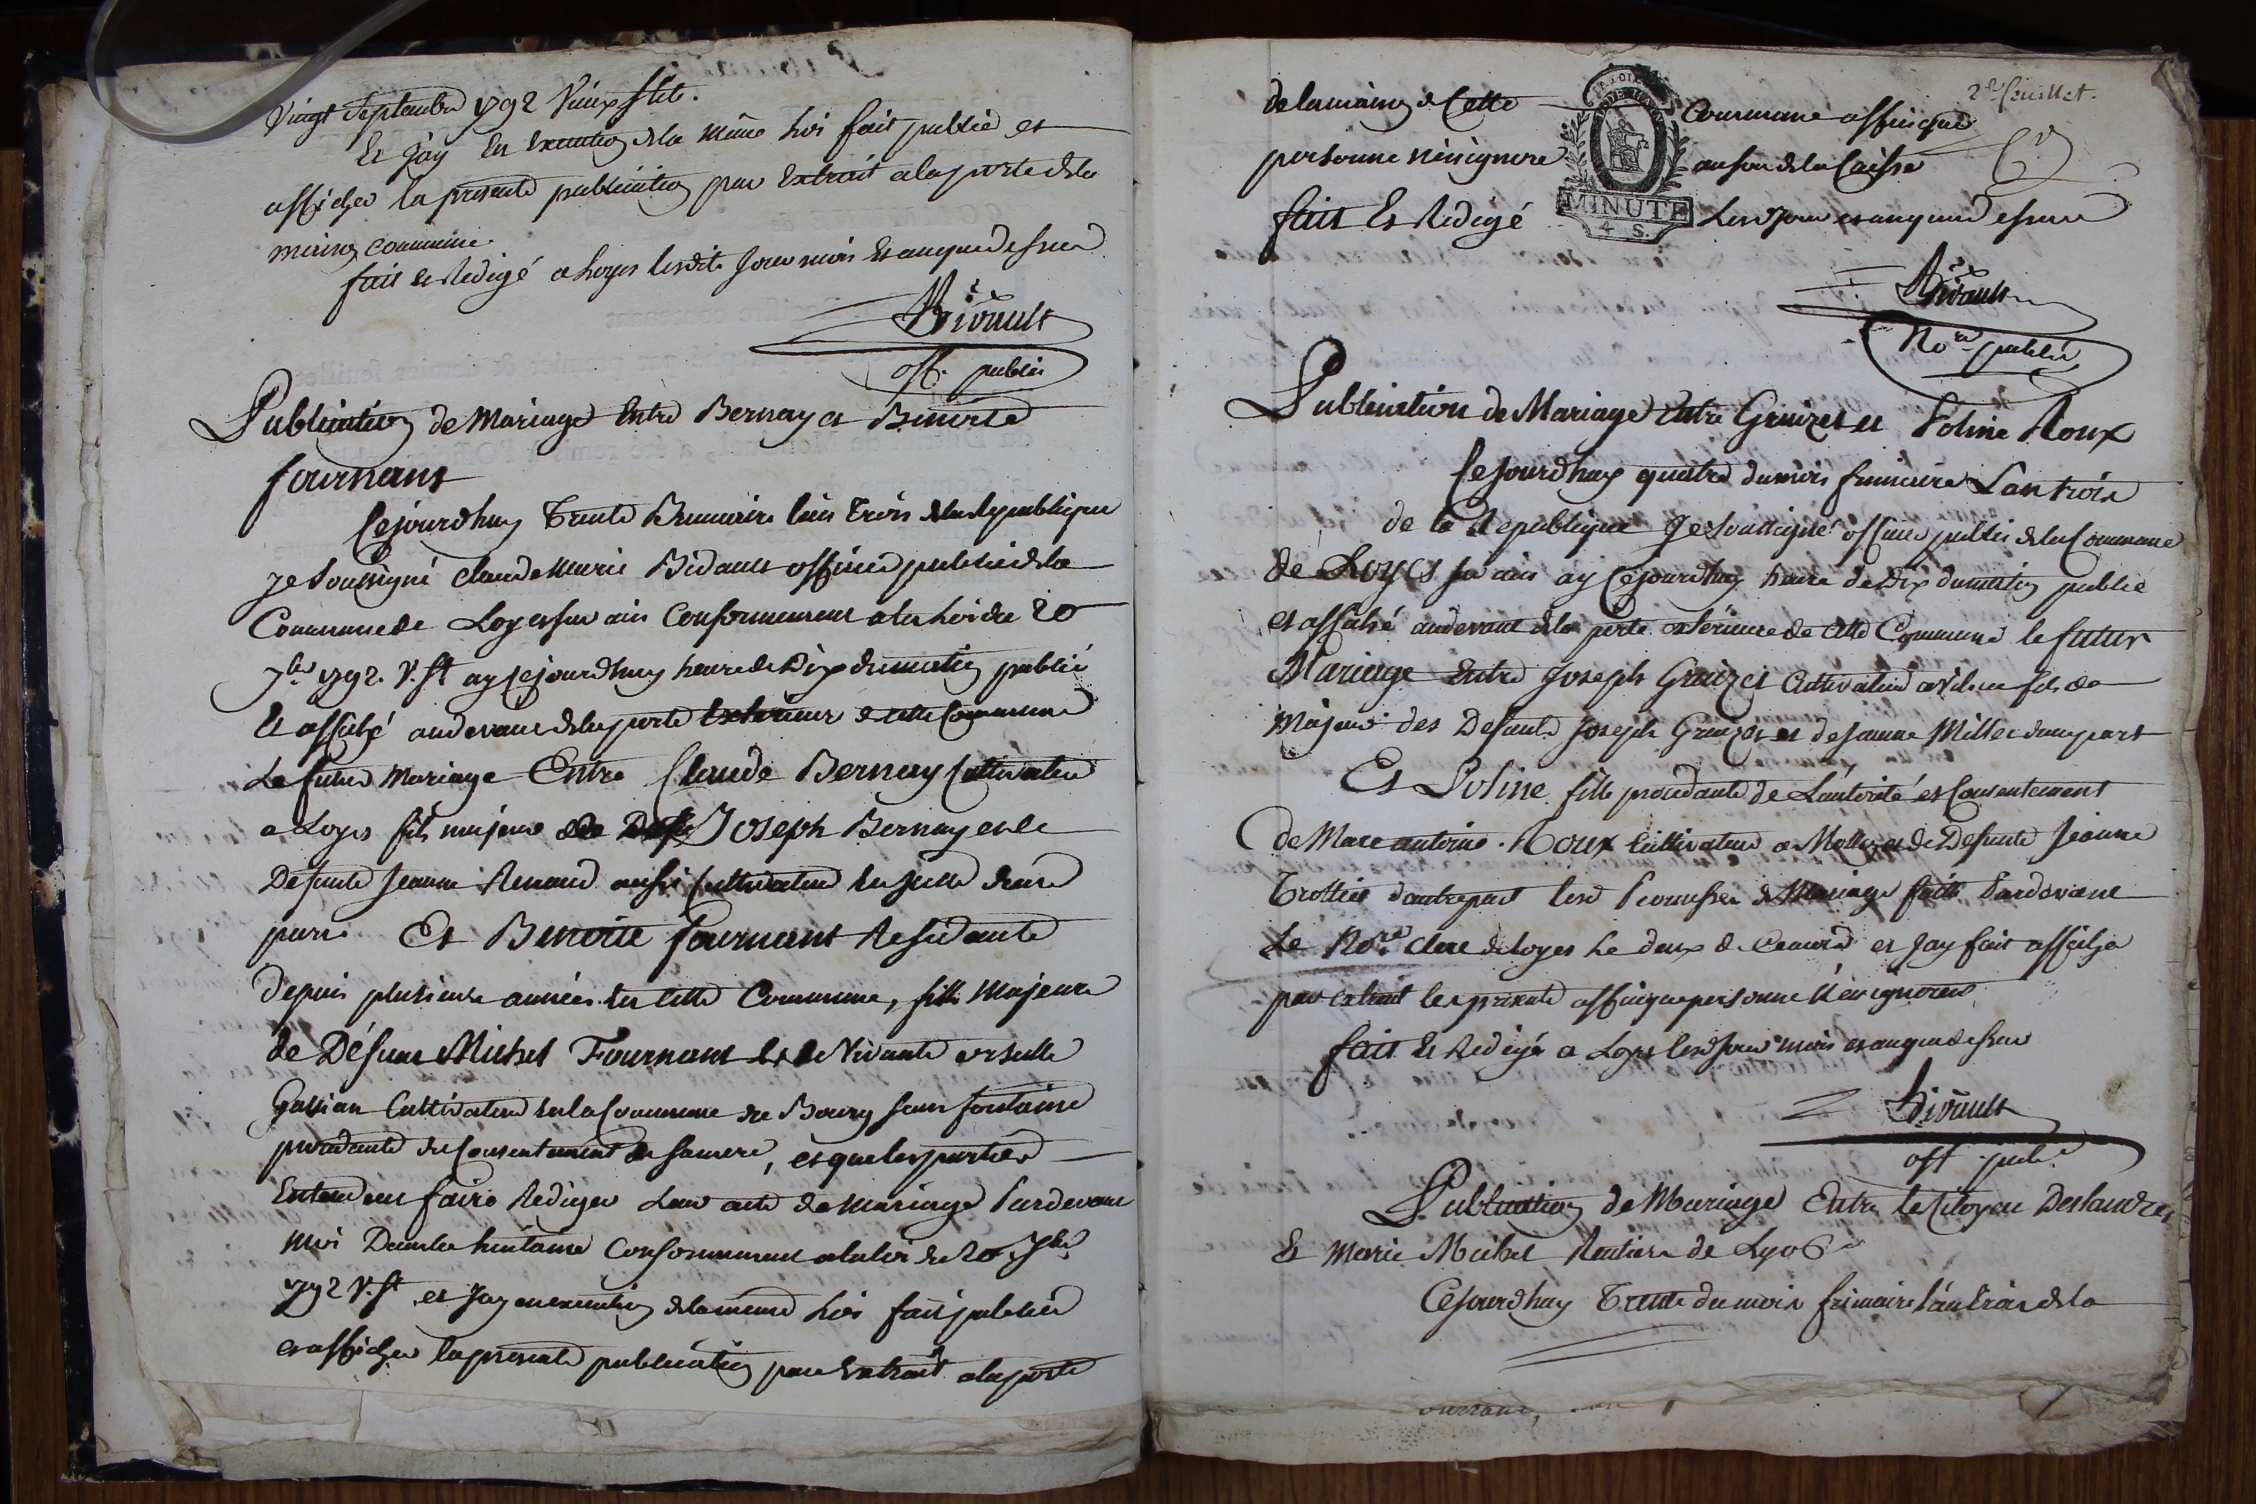 Vingt Septembre 1792 Vieux Stile.
Et J'ay En Execution de la même Loi fait publié et
afficher la presente publication par Extrait a la porte de la
maison commune.
fait et Redigé a Loyes lesdits Jour mois et an que dessus
Bidault
off. public
Publication de Mariage Entre Bernay et Benoite
fournant
Cejourdhuy Trente Brumaire l'an Trois de la Republique
Je Soussigné Claude Marie Bidault officier public de la
Commune de Loyes sur ain Conformement a la Loi du 20
7bre 1792. V. St ay cejourdhuy heure de Dix du matin publié
Et affiché au devant de la porte Exterieur de cette Commune
Le futur Mariage Entre Claude Bernay Cultivateur
a Loyes fils majeur de Joseph Bernay et de
Defunte Jeanne Renaud aussi Cultivateur d'une
part Et Benoite Fournant Residante
depuis plusieurs années en cette Commune, fille Majeure
de Défunt Michel Fournant et de Vivante ursulle
Gassian Cultivateur en la Commune de Bourg Sans fontaine
procedante du Consentement de sa mere, et que les parties
Entendent faire Rediger Leur acte de mariage Pardevant
moi Dans la huitaine Conformement a la loi du 20 7bre
1792 V. St et Jay en execution de la meme Loi fait publier
et afficher la presente publication par Extrait a la porte
2e feuillet.
de la maison de Cette Commune affin que
personne n'en ignore
MINUTE
4 S.
fait Et Redigé Lesd Jour et an que dessus
Bidault
No.re public
Publication de Mariage Entre Gruizet et Poline Roux
Cejourdhuy quatre du mois frimaire L'an trois
de la Republique Je Soussigné officier public de la Commune
de Loyes sur ain ay Cejourdhuy heure de Dix du matin publié
et affiché au devant de la porte exterieure de cette Commune le futur
Mariage Entre Joseph Gruizet Cultivateur a fils de
Majeur des Defunts Joseph Gruizet et de Jeanne Millet d'une part
Et Poline fille procedante de L'autorité et Consentement
de Marc antoine Roux Cultivateur a Mollon et de Defunte Jeanne
Trottier d'autre part Promesses de Mariage faite Pardevant
Le No.re Clerc de Loyes Le deux du Courant et Jay fait affiche
par extrait la presente affin que personne n'en ignore
fait Et Redigé a Loyes lesd Jour mois et an que dessus
Bidault
off. publ.
Publication de Mariage Entre le Citoyen Deslandres
Et Marie Michel Rentiere de Lyo
Cejourdhuy Trente du mois frimaire L'an trois de la